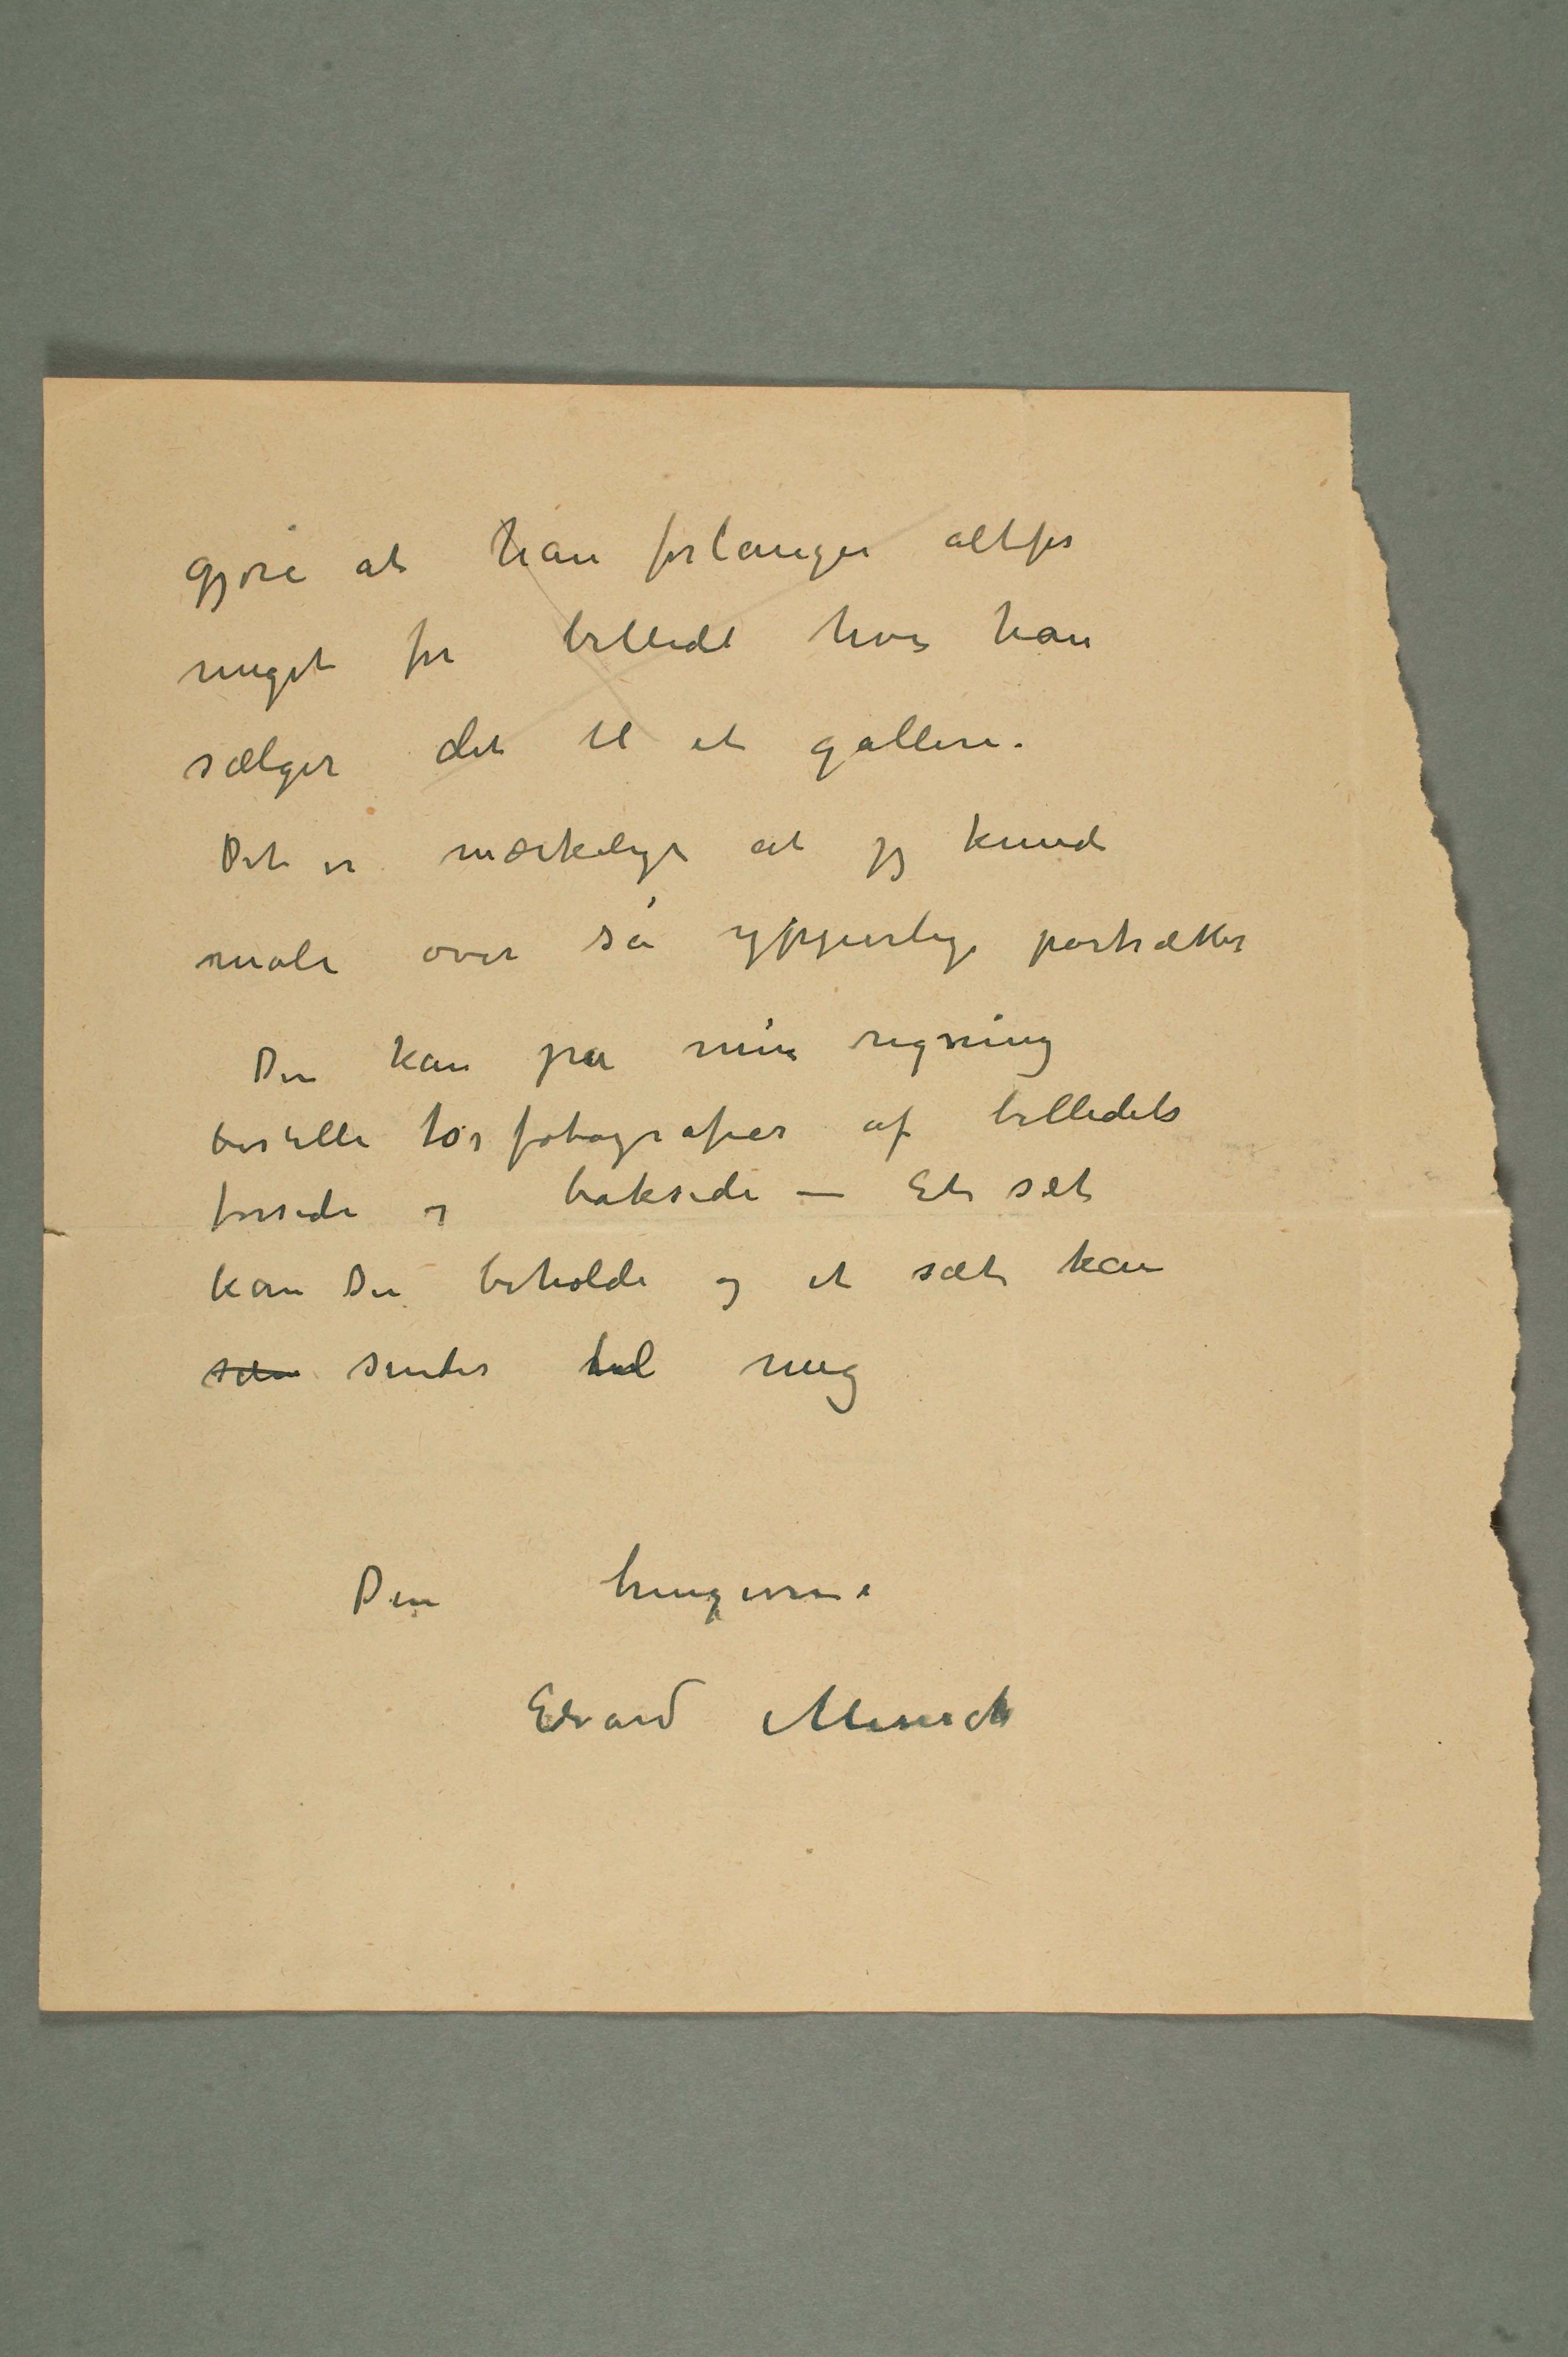 gjøre at han forlanger altfor
meget for billedet hvis han
sælger det til et galleri.
Det er mærkeligt at jeg kunde
male over så ypperlige portrætter
Du kan på min regning
bestille to fotografier af billedets
forside og bakside — Et sæt
kan Du beholde og et sæt kan
sendes til meg
Din hengivne
Edvard Munch